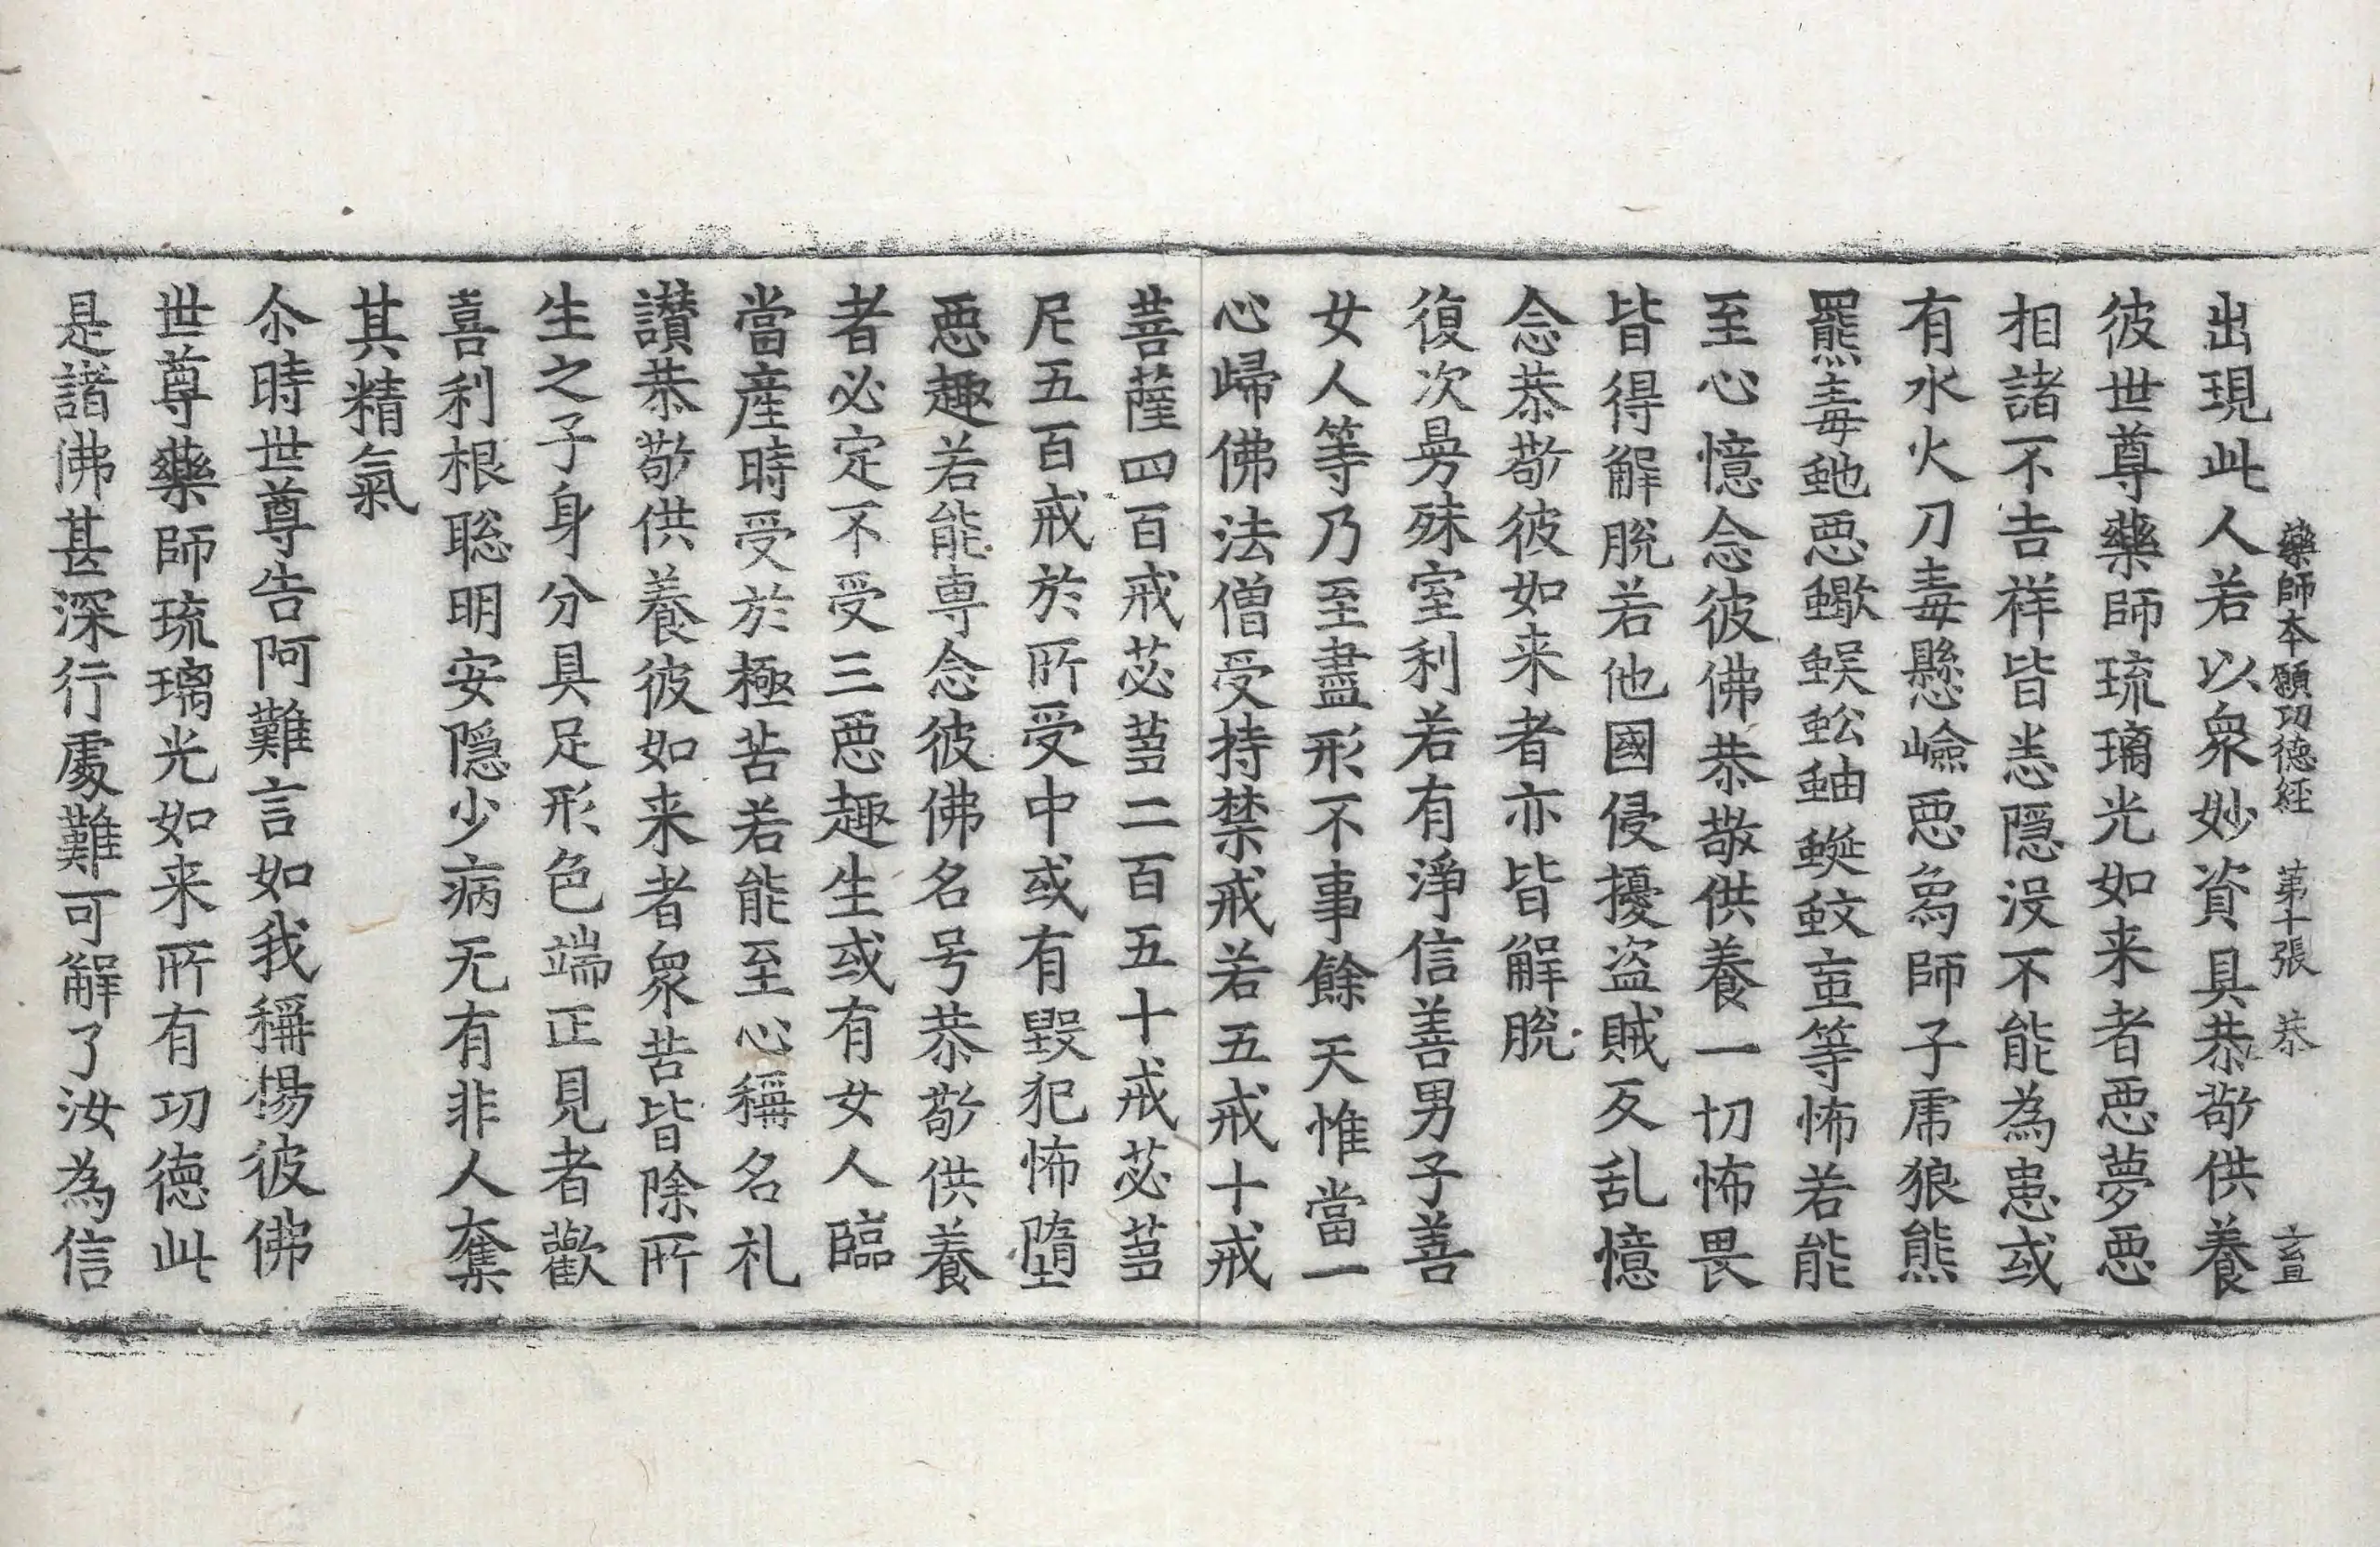 藥師本願功德經 第十張 恭
出現此人若以衆妙資具恭敬供養
彼世尊藥師琉璃光如来者惡夢惡
相諸不吉祥皆悉隱没不能為患或
有水火刀毒懸嶮惡象師子虎狼熊
羆毒虵惡蠍蜈蚣蚰蜒蚊䖟等怖若能
至心憶念彼佛恭敬供養一切怖畏
皆得解脫若他國侵擾盗賊反乱憶
念恭敬彼如来者亦皆解脫
復次曼殊室利若有淨信善男子善
女人等乃至盡形不事餘天惟當一
心歸佛法僧受持禁戒若五戒十戒
菩薩四百戒苾蒭二百五十戒苾蒭
尼五百戒於所受中或有毀犯怖墮
惡趣若能専念彼佛名号恭敬供養
者必定不受三惡趣生或有女人臨
當産時受於極苦若能至心稱名礼
讚恭敬供養彼如来者衆苦皆除所
生之子身分具足形色端正見者歡
喜利根聡明安隱少病无有非人奪
其精氣
尒時世尊告阿難言如我稱揚彼佛
世尊藥師琉璃光如来所有功德此
是諸佛甚深行處難可解了汝為信